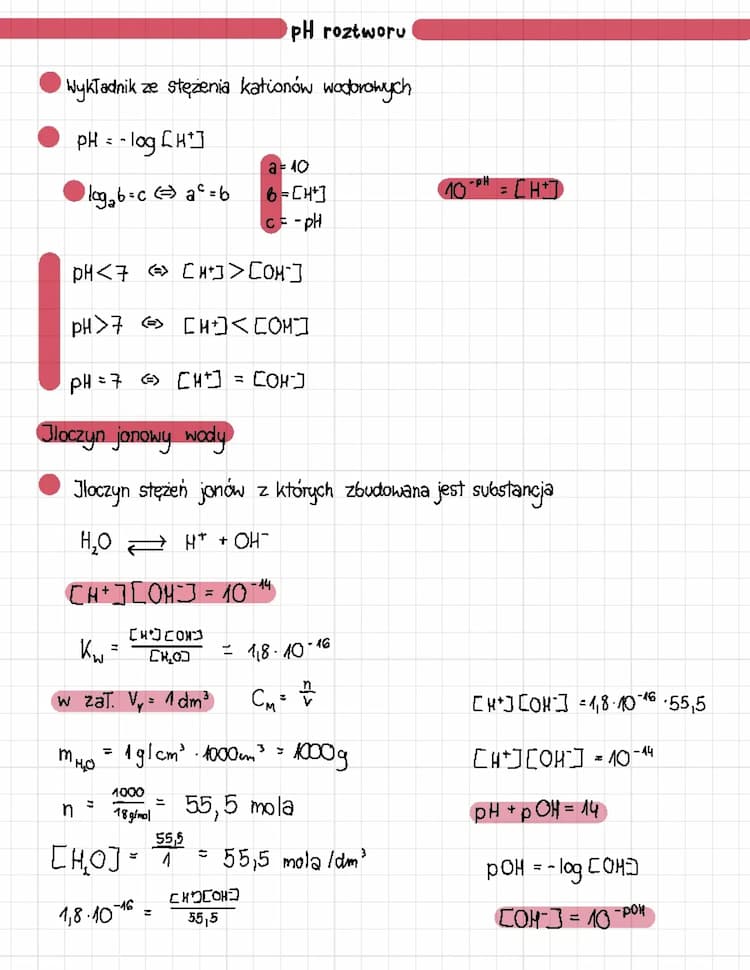 pH roztworu
Wykładnik ze stężenia kationów wodorowych
pH = -log [H⁺]
logₐb = c ⇔ aᶜ = b
a = 10
b = [H⁺]
c = -pH
10⁻ᵖᴴ = [H⁺]
pH < 7 ⇔ [H⁺] > [OH⁻]
pH > 7 ⇔ [H⁺] < [OH⁻]
pH = 7 ⇔ [H⁺] = [OH⁻]
Iloczyn jonowy wody
Iloczyn stężeń jonów z których zbudowana jest substancja
H₂O ⇌ H⁺ + OH⁻
[H⁺][OH⁻] = 10⁻¹⁴
K_w = [H⁺][OH⁻] / [H₂O] = 1,8 · 10⁻¹⁶
w zał. Vᵣ = 1 dm³ C_M = n/V
m_H₂O = 1 g/cm³ · 1000cm³ = 1000g
n = 1000 / 18 g/mol = 55,5 mola
[H₂O] = 55,5 / 1 = 55,5 mola/dm³
1,8 · 10⁻¹⁶ = [H⁺][OH⁻] / 55,5
[H⁺][OH⁻] = 1,8 · 10⁻¹⁶ · 55,5
[H⁺][OH⁻] = 10⁻¹⁴
pH + pOH = 14
pOH = -log [OH⁻]
[OH⁻] = 10⁻ᵖᴼᴴ